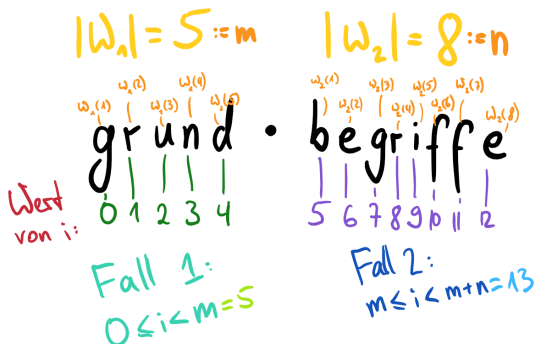 |w₁| = 5 := m |w₂| = 8 := n
w₁(1) w₁(2) w₁(3) w₁(4) w₁(5) w₂(1) w₂(2) w₂(3) w₂(4) w₂(5) w₂(6) w₂(7) w₂(8)
grund · begriffe
Wert von i: 0 1 2 3 4 5 6 7 8 9 10 11 12
Fall 1: Fall 2:
0 ≤ i < m = 5 m ≤ i < m+n = 13